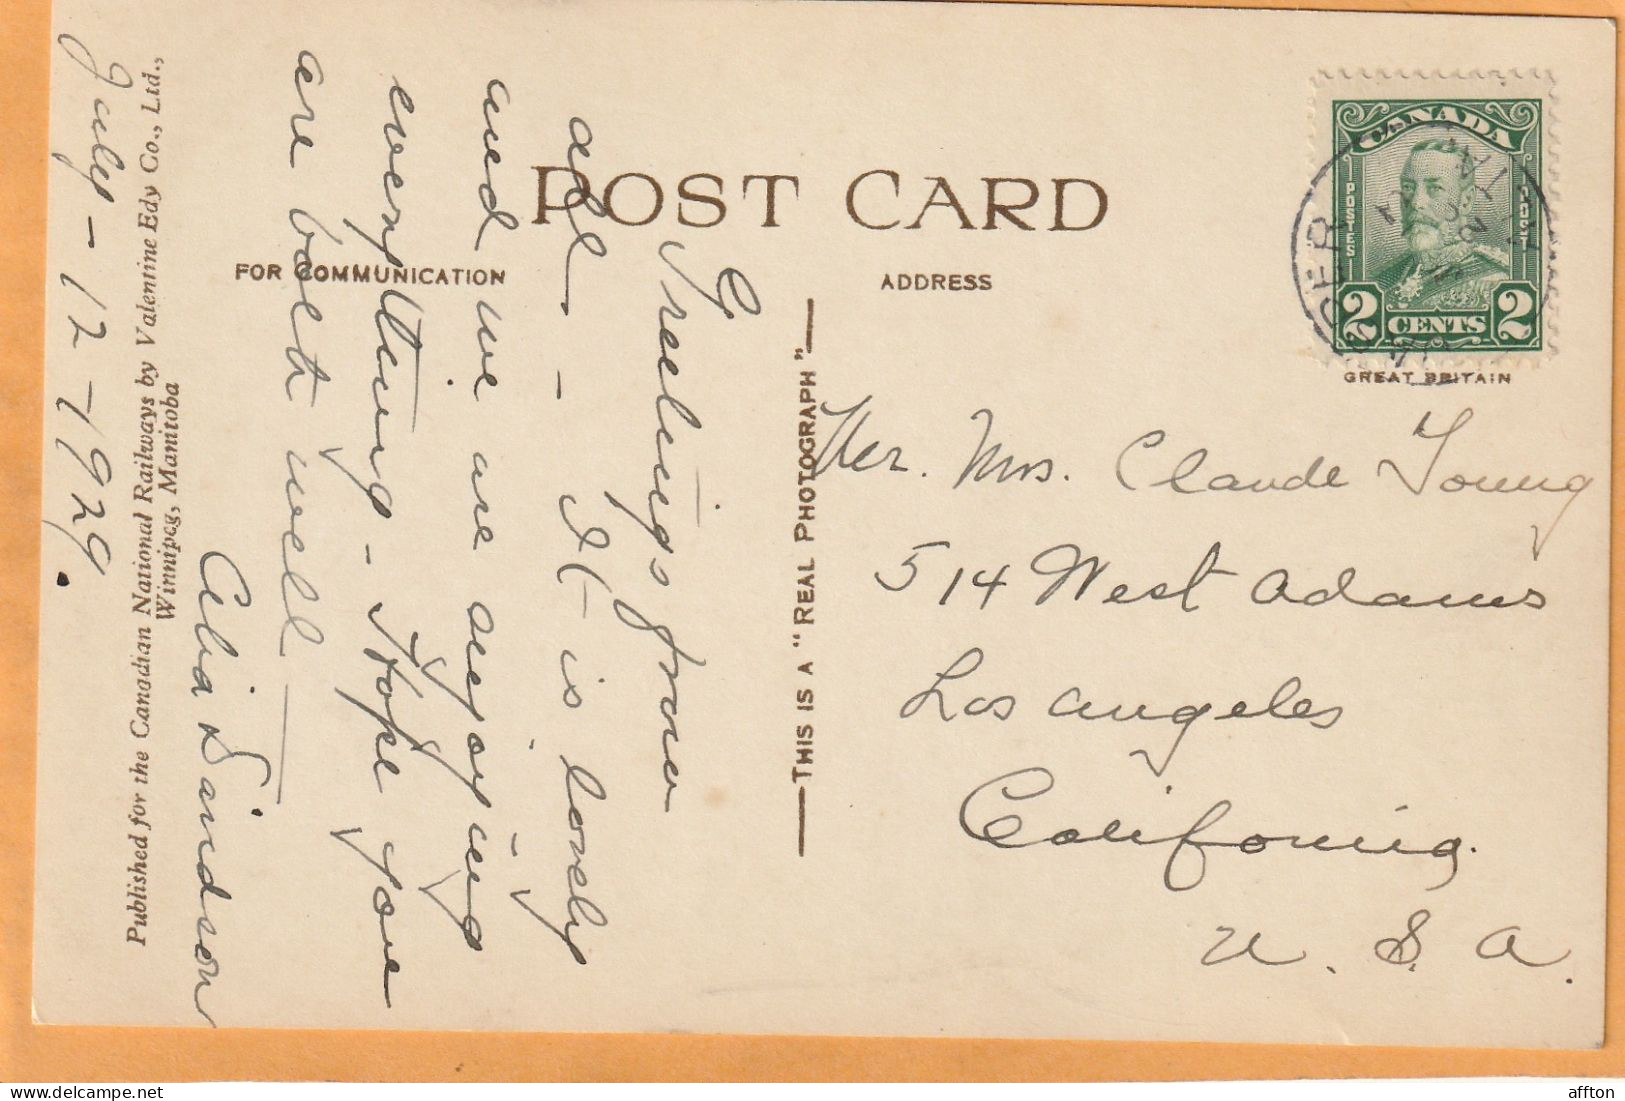 POST CARD
FOR COMMUNICATION
ADDRESS
CANADA
POSTES
POST
2 CENTS 2
GREAT BRITAIN
JASPER
ALTA
Greetings from
all - It is lovely
and we are enjoying
everything - Hope you
are both well
Davidson
July - 12 - 1929.
Published for the Canadian National Railways by Valentine Edy Co., Ltd.,
Winnipeg, Manitoba
THIS IS A "REAL PHOTOGRAPH"
Mr. Mrs. Claude Young
514 West Adams
Los Angeles
California.
U. S. A.
affton